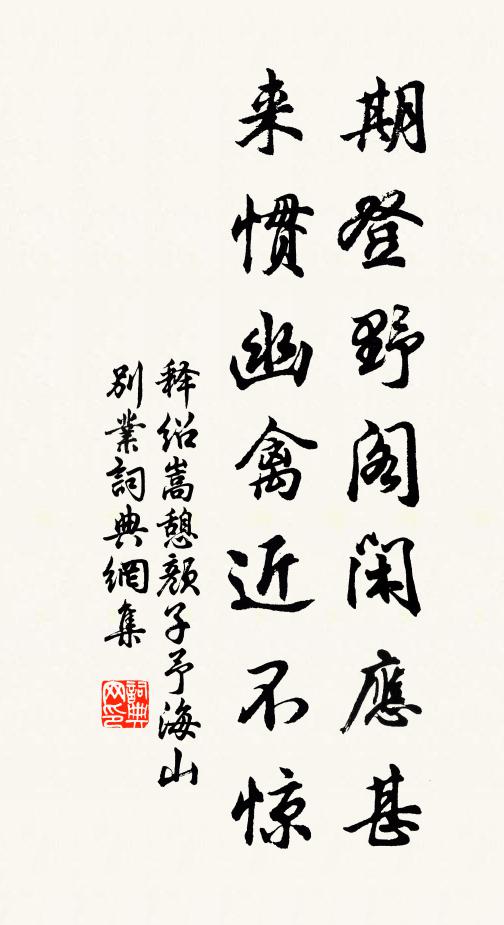 期登野阁闲應甚
来慣幽禽近不惊
释绍嵩憩颜子予海山
别業詞典網集
詞典网印